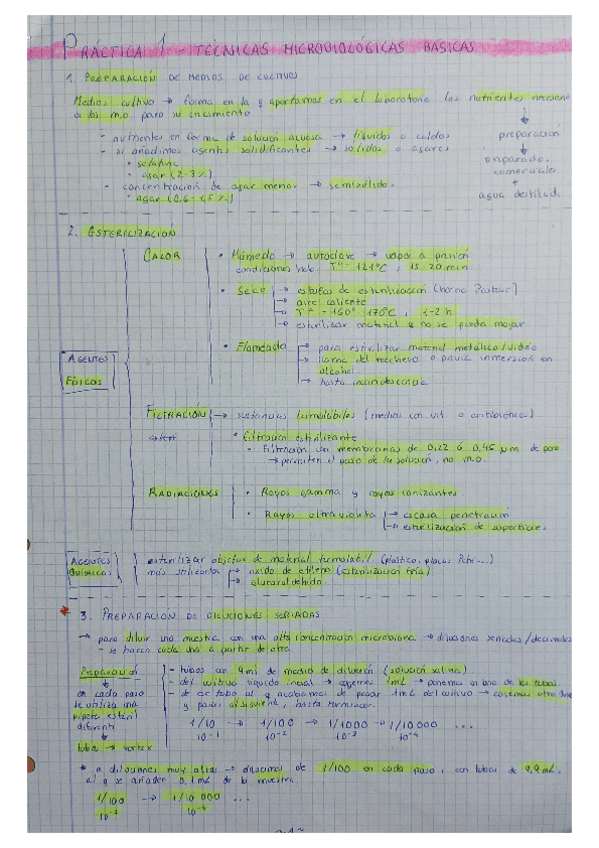 PRÁCTICA 1 - TÉCNICAS MICROBIOLÓGICAS BÁSICAS
1. PREPARACIÓN DE MEDIOS DE CULTIVO
Medios cultivo → forma en la q aportamos en el laboratorio los nutrientes
a los m.o. para su crecimiento
- nutrientes en forma de solución acuosa → líquidos o caldos
preparación
- si añadimos agentes solidificantes → solidos o agares
• gelatina
• agar (2-3%)
preparados
comerciales
+
- concentración de agar menor → semisólidos
agua destilada
• agar
2. ESTERILIZACIÓN
AGENTES FÍSICOS
CALOR
• Húmedo → autoclave → vapor a presión
condiciones hab. Tª = 121ºC, 15-20 min
• Seco → estufas de esterilización (horno Pasteur)
→ aire caliente
→ Tª = 160º-170ºC, 1-2 h
→ esterilizar material q no se pueda mojar
• Flameado → para esterilizar material metálico/vidrio
→ llama del mechero o previa inmersión en
alcohol
→ hasta incandescencia
FILTRACIÓN → sustancias termolábiles (medios con vit. o antibióticos)
• Filtración esterilizante
• Filtración con membranas de 0,22 ó 0,45 µm de poro
→ permiten el paso de la solución, no m.o.
RADIACIONES
• Rayos gamma y rayos ionizantes
• Rayos ultravioleta → escasa penetración
→ esterilización de superficies
AGENTES QUÍMICOS
esterilizar objetos de material termolábil (plástico, placas Petri...)
más utilizados → óxido de etileno (esterilización fría)
→ glutaraldehido
* 3. PREPARACIÓN DE DILUCIONES SERIADAS
→ para diluir una muestra con una alta concentración microbiana → diluciones seriadas/decimales
- se hacen cada una a partir de otra
Preparación
en cada paso
se utiliza una
pipeta estéril
diferente
tubos → vortex
- tubos con 9 ml de medio de dilución (solución salina)
- del cultivo líquido inicial → 1 mL → ponemos en uno de los tubos
- de ese tubo al q acabamos de pasar 1 mL del cultivo → cogemos otro
y pasar al siguiente, hasta terminar.
1/10 → 1/100 → 1/1000 → 1/10000 ...
10⁻¹ 10⁻² 10⁻³ 10⁻⁴
* a diluciones muy altas → diluciones de 1/100 en cada paso, con tubos de 9,9 mL
al q se añaden 0,1 mL de la muestra.
1/100 → 1/10 000 ...
10⁻² 10⁻⁴